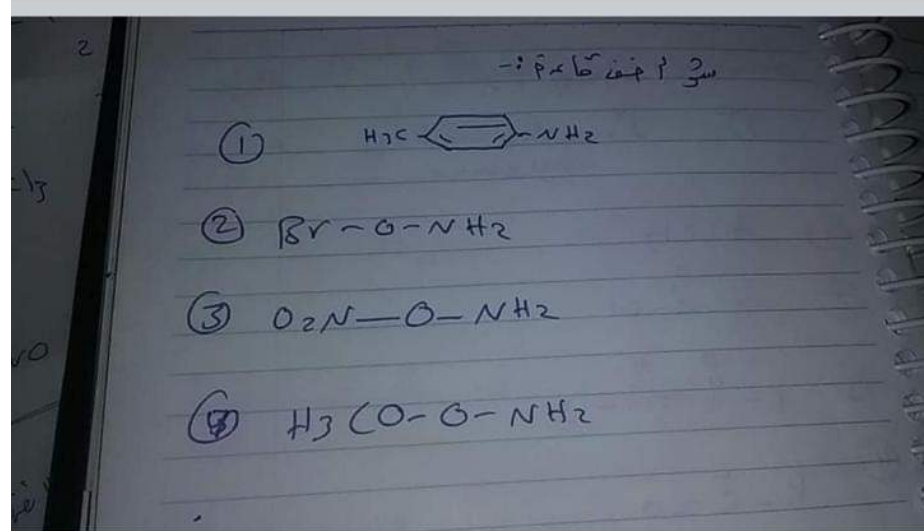 س/ اضعف قاعدة :-
① H3C-⌬-NH2
② Br-O-NH2
③ O2N-O-NH2
④ H3CO-O-NH2
2